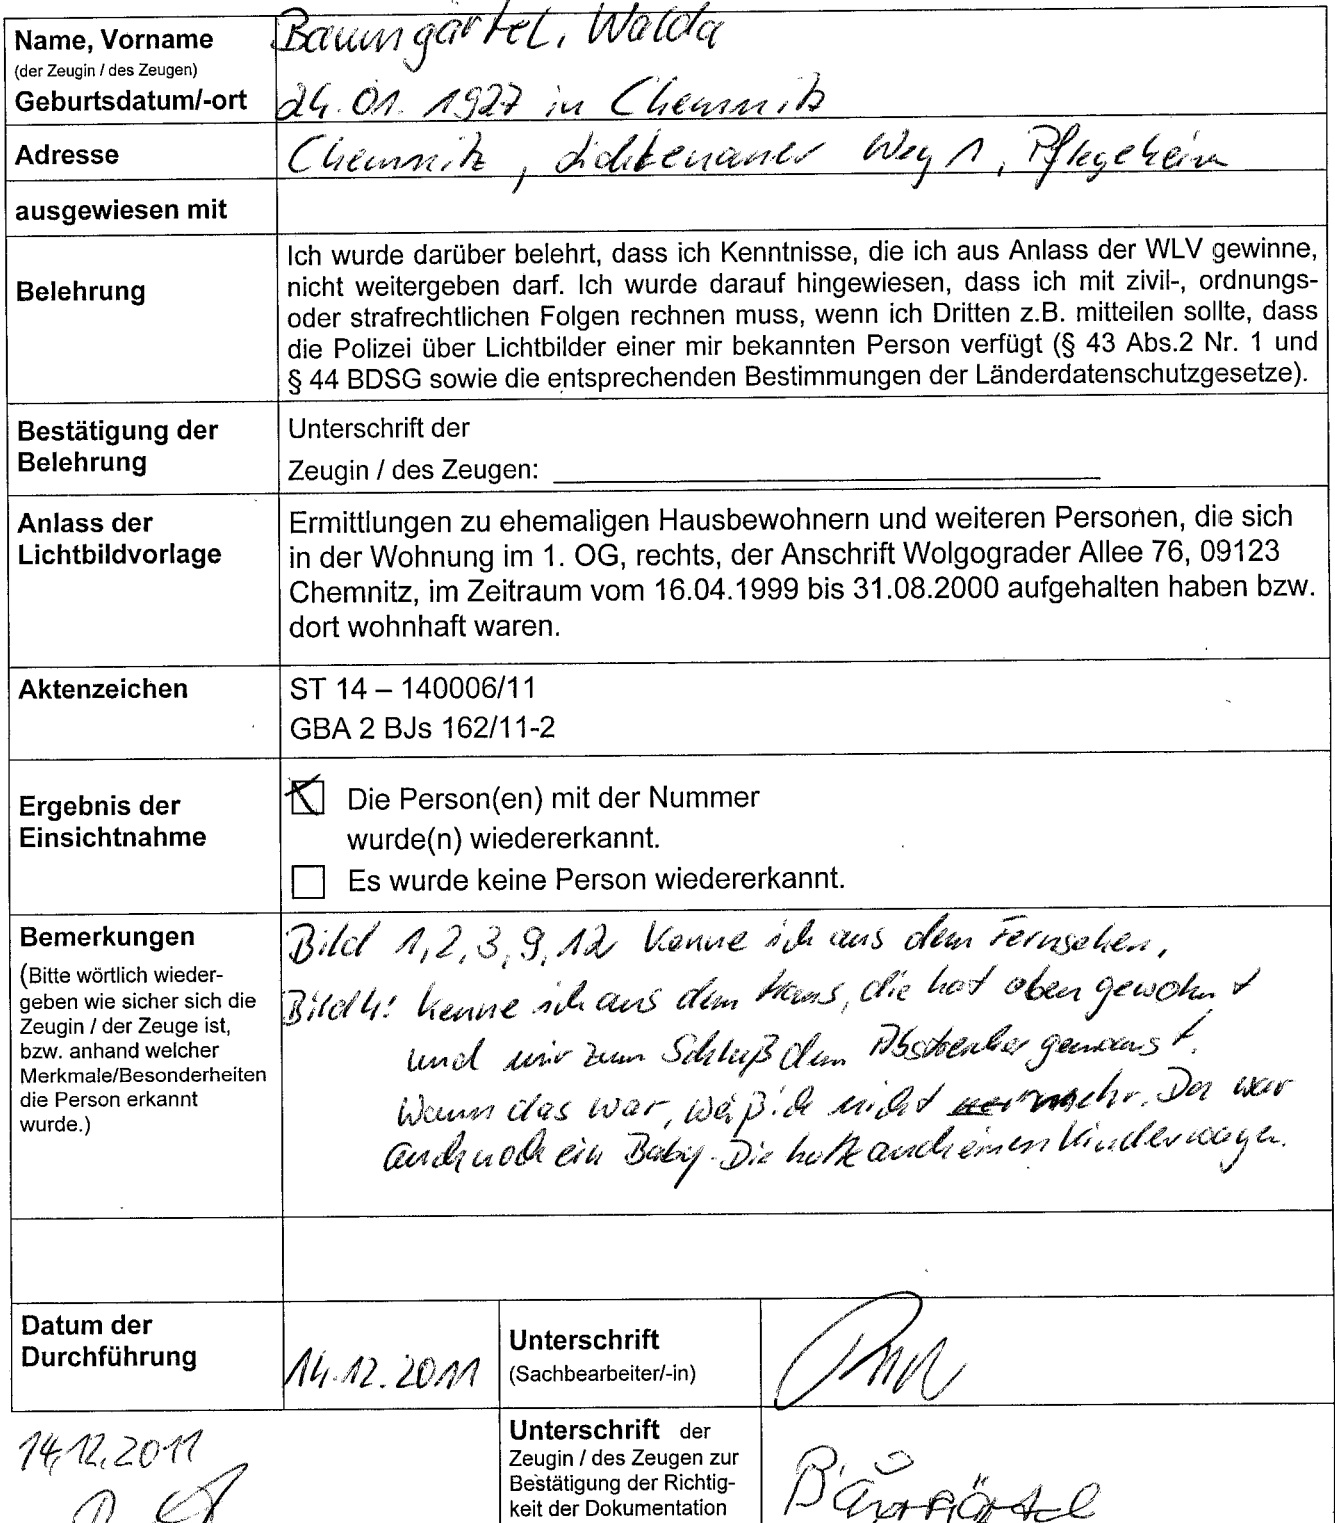 Name, Vorname
(der Zeugin / des Zeugen)
Baumgärtel, Walda
Geburtsdatum/-ort
24.01.1927 in Chemnitz
Adresse
Chemnitz, Lichtenauer Weg 1, Pflegeheim
ausgewiesen mit
Belehrung
Ich wurde darüber belehrt, dass ich Kenntnisse, die ich aus Anlass der WLV gewinne,
nicht weitergeben darf. Ich wurde darauf hingewiesen, dass ich mit zivil-, ordnungs-
oder strafrechtlichen Folgen rechnen muss, wenn ich Dritten z.B. mitteilen sollte, dass
die Polizei über Lichtbilder einer mir bekannten Person verfügt (§ 43 Abs.2 Nr. 1 und
§ 44 BDSG sowie die entsprechenden Bestimmungen der Länderdatenschutzgesetze).
Bestätigung der
Belehrung
Unterschrift der
Zeugin / des Zeugen:
Anlass der
Lichtbildvorlage
Ermittlungen zu ehemaligen Hausbewohnern und weiteren Personen, die sich
in der Wohnung im 1. OG, rechts, der Anschrift Wolgograder Allee 76, 09123
Chemnitz, im Zeitraum vom 16.04.1999 bis 31.08.2000 aufgehalten haben bzw.
dort wohnhaft waren.
Aktenzeichen
ST 14 – 140006/11
GBA 2 BJs 162/11-2
Ergebnis der
Einsichtnahme
Die Person(en) mit der Nummer
wurde(n) wiedererkannt.
Es wurde keine Person wiedererkannt.
Bemerkungen
(Bitte wörtlich wieder-
geben wie sicher sich die
Zeugin / der Zeuge ist,
bzw. anhand welcher
Merkmale/Besonderheiten
die Person erkannt
wurde.)
Bild 1, 2, 3, 9, 12 kenne ich aus dem Fernsehen,
Bild 4: kenne ich aus dem Haus, die hat oben gewohnt
und mir zum Schluß den
Wann das war, weiß ich nicht mehr. Da war
auch noch ein Baby. Die hatte auch einen Kinderwagen.
Datum der
Durchführung
14.12.2011
Unterschrift
(Sachbearbeiter/-in)
14.12.2011
Unterschrift der
Zeugin / des Zeugen zur
Bestätigung der Richtig-
keit der Dokumentation
Baumgärtel